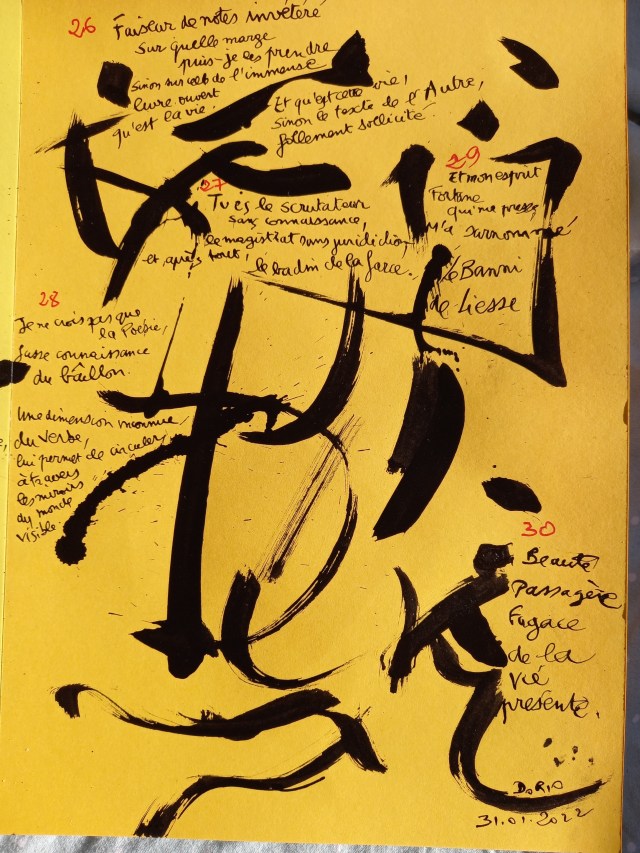 26
Faiseur de notes invétéré
Sur quelle marge
puis-je les prendre
Sinon sur celle de l'immense
livre ouvert
qu'est la vie.
Et qu'est cette vie,
sinon le texte de l'Autre,
follement sollicité.
27
Tu es le scrutateur
sans connaissance,
le magistrat sans juridiction
et, après tout, le badin de la farce.
28
Je ne crois pas que
la Poésie,
fasse connaissance
du bâillon.
Une dimension inconnue
du Verbe,
lui permet de circuler
à travers
les miroirs
du monde
visible.
29
Et mon esprit
Fortune
qui me presse
m'a surnommé
le Banni
de Liesse
30
Beauté
Passagère
Fugace
de la
vie
présente.
DORIO
31.01.2022